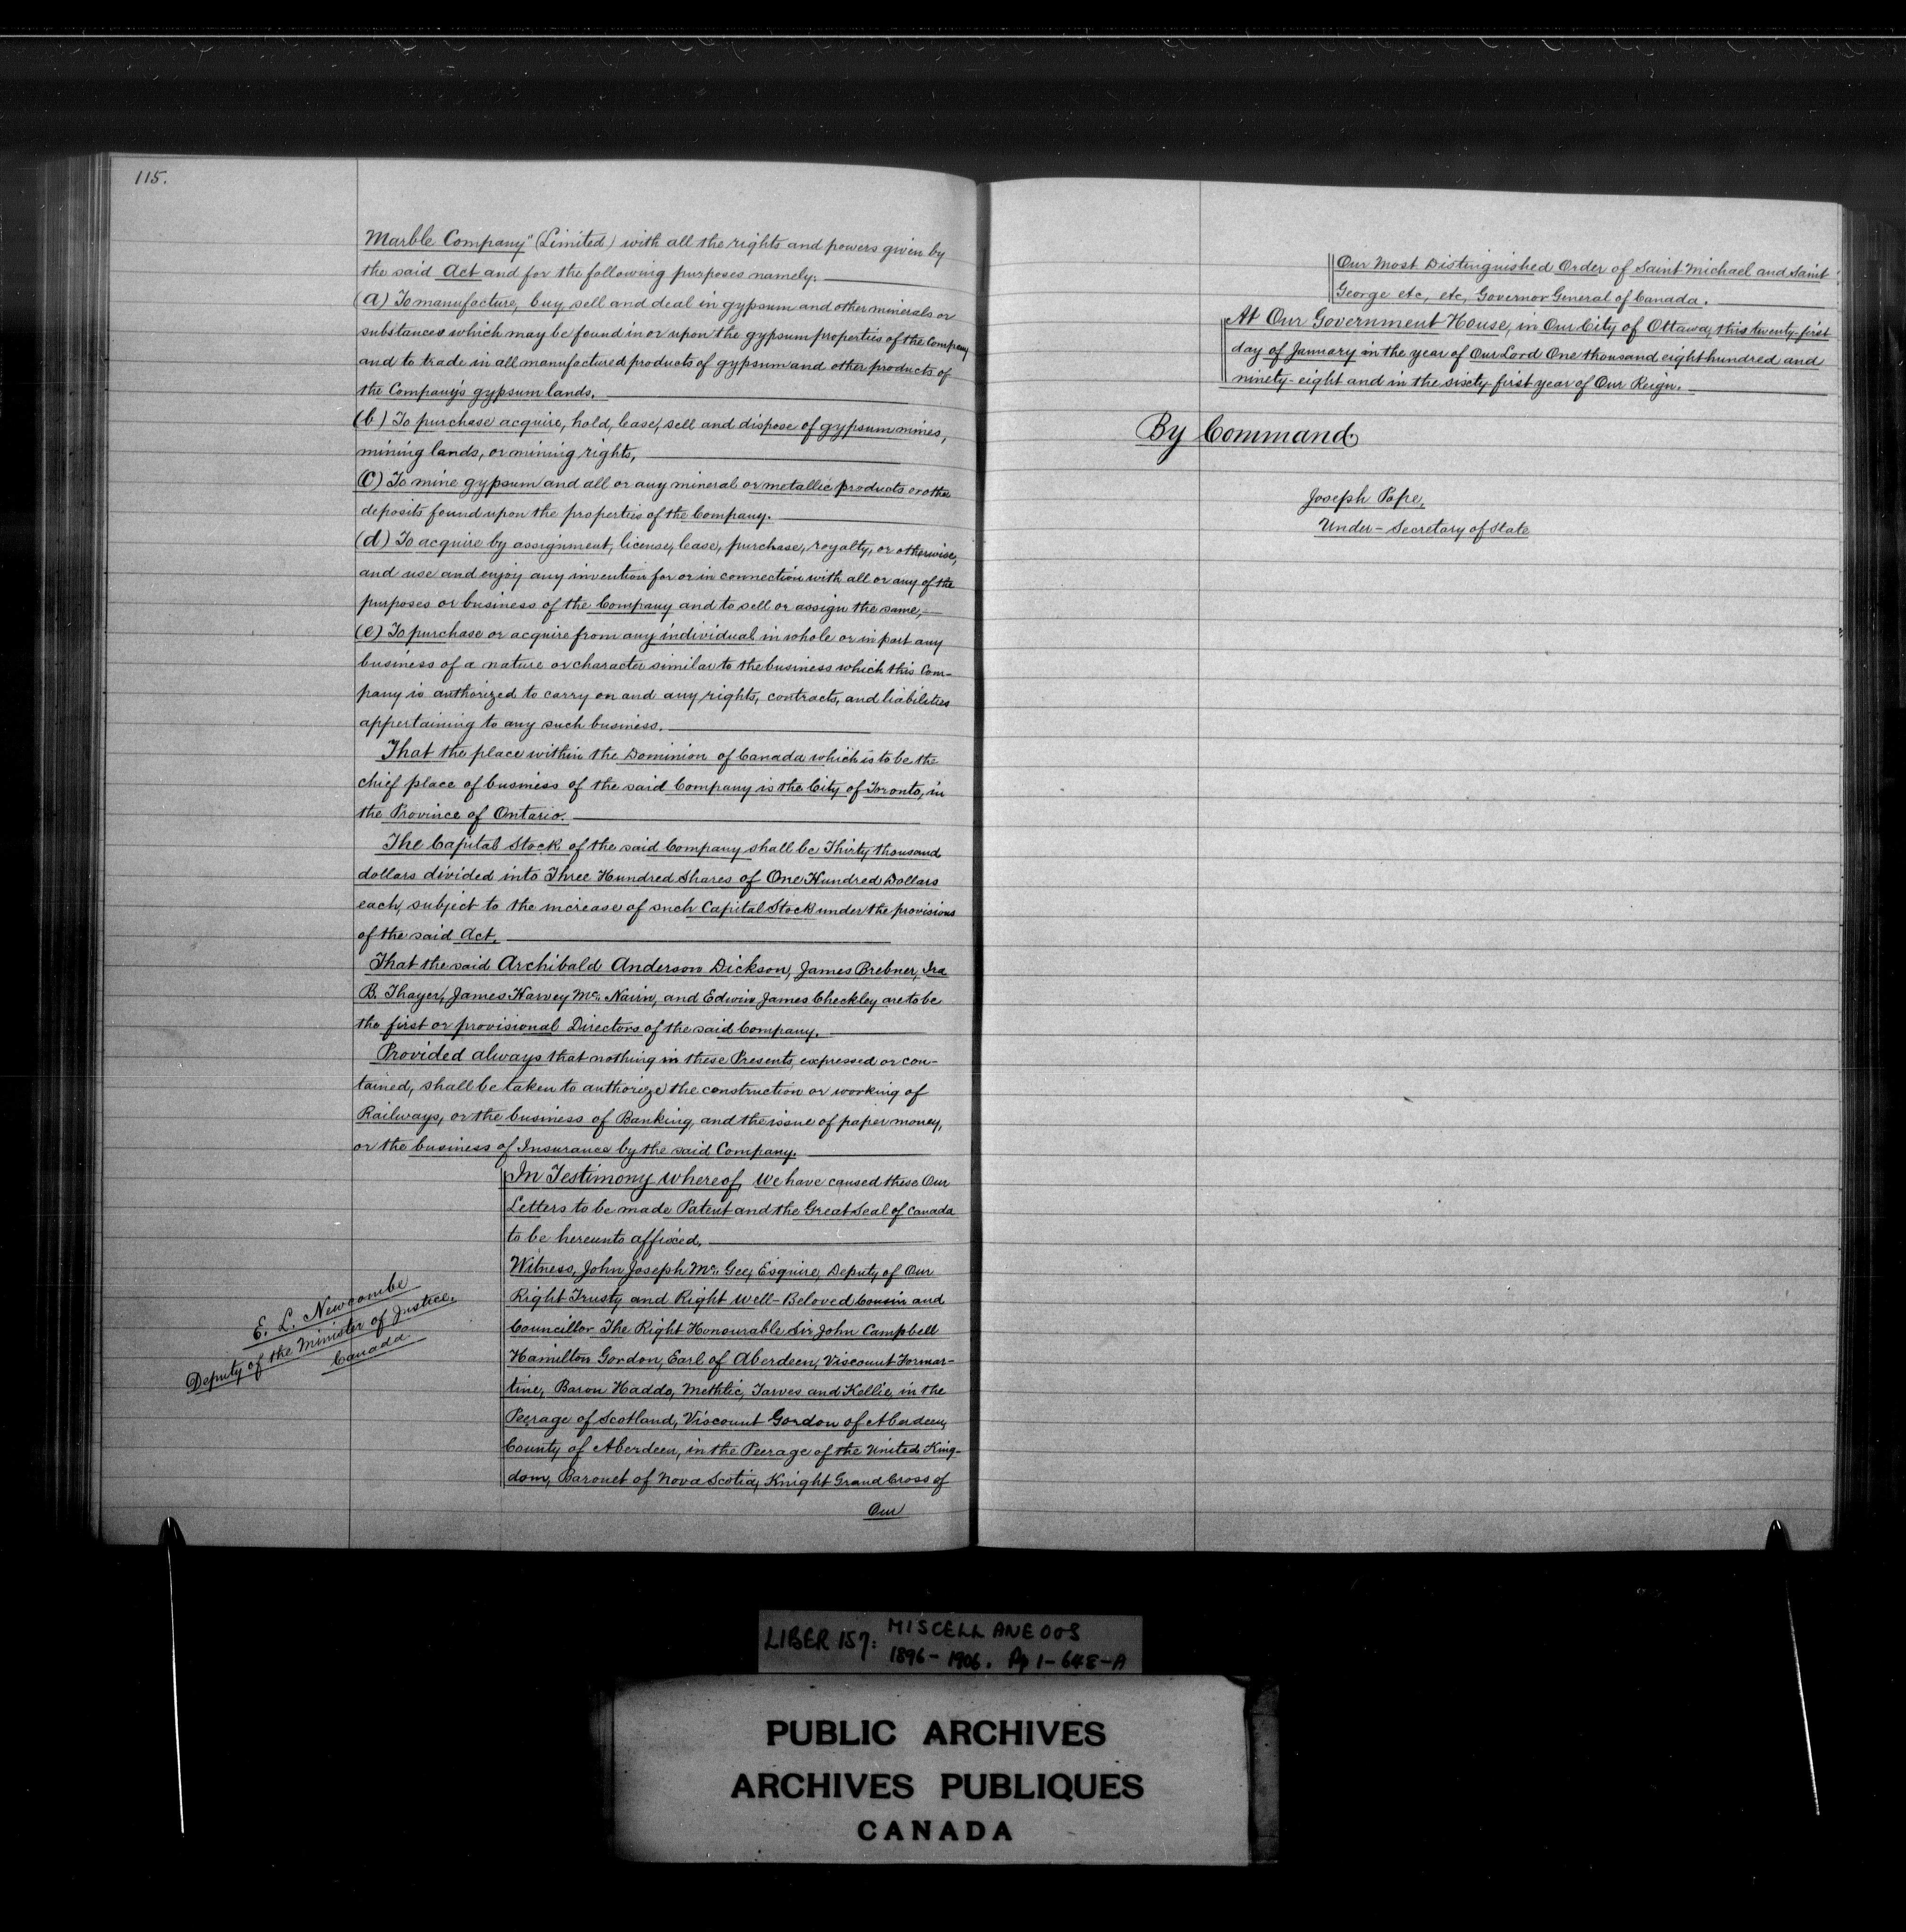 115.
Marble Company" (Limited) with all the rights and powers given by
the said Act and for the following purposes namely:
(a) To manufacture, buy, sell and deal in gypsum and other minerals or
substances which may be found in or upon the gypsum properties of the Company
and to trade in all manufactured products of gypsum and other products of
the Company's gypsum lands.
(b) To purchase acquire, hold, lease, sell and dispose of gypsum mines,
mining lands, or mining rights,
(c) To mine gypsum and all or any mineral or metallic products or other
deposits found upon the properties of the Company.
(d) To acquire by assignment, license, lease, purchase, royalty, or otherwise,
and use and enjoy any invention for or in connection with all or any of the
purposes or business of the Company and to sell or assign the same,
(e) To purchase or acquire from any individual in whole or in part any
business of a nature or character similar to the business which this Com-
pany is authorized to carry on and any rights, contracts, and liabilities
appertaining to any such business.
That the place within the Dominion of Canada which is to be the
chief place of business of the said Company is the City of Toronto, in
the Province of Ontario.
The Capital Stock of the said Company shall be Thirty thousand
dollars divided into Three Hundred Shares of One Hundred Dollars
each, subject to the increase of such Capital Stock under the provisions
of the said Act.
That the said Archibald Anderson Dickson, James Brebner, Ira
B. Thayer, James Harvey Mc. Nairn, and Edwin James Checkley are to be
the first or provisional Directors of the said Company.
Provided always that nothing in these Presents expressed or con-
tained, shall be taken to authorize the construction or working of
Railways, or the business of Banking, and the issue of paper money,
or the business of Insurance by the said Company.
In Testimony whereof, We have caused these Our
Letters to be made Patent and the Great Seal of Canada
to be hereunto affixed.
Witness, John Joseph Mc. Gee, Esquire, Deputy of Our
Right Trusty and Right Well-Beloved Cousin and
Councillor The Right Honourable Sir John Campbell
Hamilton Gordon, Earl of Aberdeen, Viscount Formar-
tine, Baron Haddo, Methlic, Tarves and Kellie, in the
Peerage of Scotland, Viscount Gordon of Aberdeen,
County of Aberdeen, in the Peerage of the United King-
dom, Baronet of Nova Scotia, Knight Grand Cross of
Our
E. L. Newcombe
Deputy of the Minister of Justice.
Canada
Our Most Distinguished Order of Saint Michael and Saint
George etc, etc, Governor General of Canada.
At Our Government House, in Our City of Ottawa, this twenty-first
day of January in the year of Our Lord One thousand eight hundred and
ninety-eight and in the sixty-first year of Our Reign.
By Command
Joseph Pope,
Under-Secretary of State
LIBER 157: MISCELLANEOUS
1896-1906. Pp 1-648-A
PUBLIC ARCHIVES
ARCHIVES PUBLIQUES
CANADA